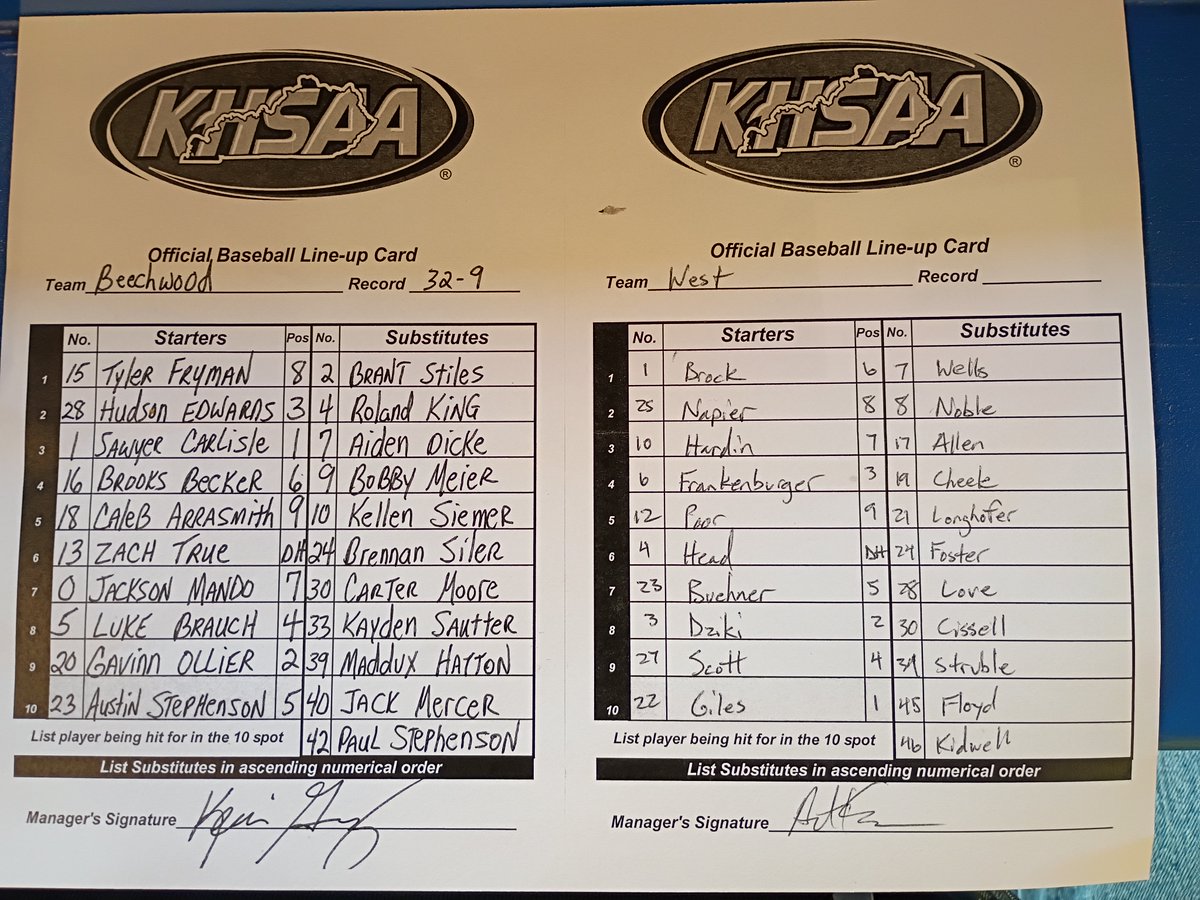 KHSAA
®
Official Baseball Line-up Card
Team Beechwood Record 32-9
No. Starters Pos No. Substitutes
1 15 Tyler Fryman 8 2 Brant Stiles
2 28 Hudson Edwards 3 4 Roland King
3 1 Sawyer Carlisle 1 7 Aiden Dicke
4 16 Brooks Becker 6 9 Bobby Meier
5 18 Caleb Arrasmith 9 10 Kellen Siemer
6 13 Zach True DH 24 Brennan Siler
7 0 Jackson Mando 7 30 Carter Moore
8 5 Luke Brauch 4 33 Kayden Sautter
9 20 Gavinn Ollier 2 39 Maddux Hatton
10 23 Austin Stephenson 5 40 Jack Mercer
List player being hit for in the 10 spot 42 Paul Stephenson
List Substitutes in ascending numerical order
Manager's Signature
KHSAA
®
Official Baseball Line-up Card
Team West Record
No. Starters Pos No. Substitutes
1 1 Brock 6 7 Wells
2 25 Napier 8 8 Noble
3 10 Hardin 7 17 Allen
4 6 Frankenburger 3 19 Cheek
5 12 Poor 9 21 Longhofer
6 4 Head DH 24 Foster
7 23 Buehner 5 28 Love
8 3 Dziki 2 30 Cissell
9 27 Scott 4 Struble
10 22 Giles 1 45 Floyd
List player being hit for in the 10 spot 46 Kidwell
List Substitutes in ascending numerical order
Manager's Signature